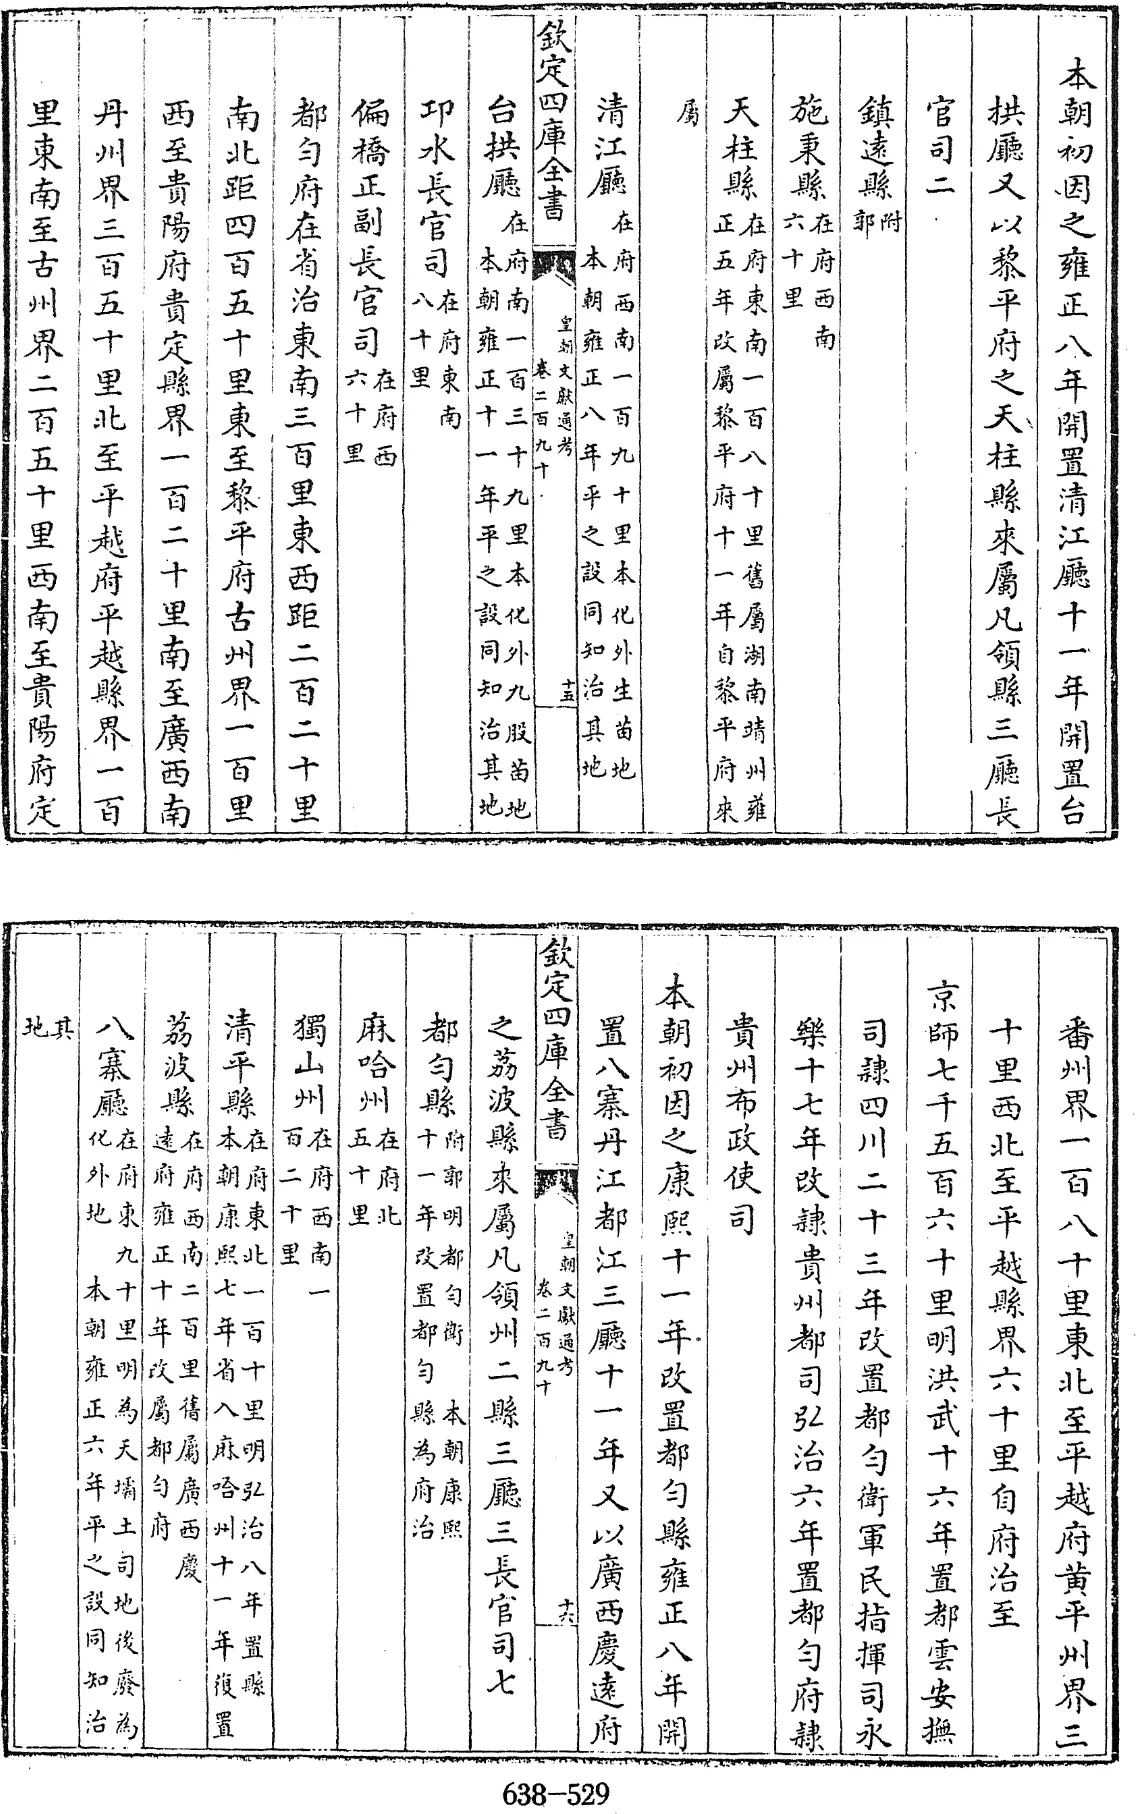 本朝初因之雍正八年開置清江廳十一年開置台
拱廳又以黎平府之天柱縣來屬凡領縣三廳長
官司二
鎮遠縣附
郭
施秉縣在府西南
六十里
天柱縣在府東南一百八十里舊屬湖南靖州雍
正五年改屬黎平府十一年自黎平府來
屬
清江廳在府西南一百九十里本化外生苗地
本朝雍正八年平之設同知治其地
欽定四庫全書
皇朝文獻通考
卷二百九十
十五
台拱廳在府南一百三十九里本化外九股苗地
本朝雍正十一年平之設同知治其地
卭水長官司在府東南
八十里
偏橋正副長官司在府西
六十里
都勻府在省治東南三百里東西距二百二十里
南北距四百五十里東至黎平府古州界一百里
西至貴陽府貴定縣界一百二十里南至廣西南
丹州界三百五十里北至平越府平越縣界一百
里東南至古州界二百五十里西南至貴陽府定
番州界一百八十里東北至平越府黃平州界三
十里西北至平越縣界六十里自府治至
京師七千五百六十里明洪武十六年置都雲安撫
司隷四川二十三年改置都勻衛軍民指揮司永
樂十七年改隷貴州都司弘治六年置都勻府隷
貴州布政使司
本朝初因之康熙十一年改置都勻縣雍正八年開
置八寨丹江都江三廳十一年又以廣西慶遠府
欽定四庫全書
皇朝文獻通考
卷二百九十
十六
之荔波縣來屬凡領州二縣三廳三長官司七
都勻縣附郭明都勻衛本朝康熙
十一年改置都勻縣為府治
麻哈州在府北
五十里
獨山州在府西南一
百二十里
清平縣在府東北一百十里明弘治八年置縣
本朝康熙七年省入麻哈州十一年復置
荔波縣在府西南二百里舊屬廣西慶
遠府雍正十年改屬都勻府
八寨廳在府東九十里明為天壩土司地後廢為
化外地本朝雍正六年平之設同知治
其
地
638—529